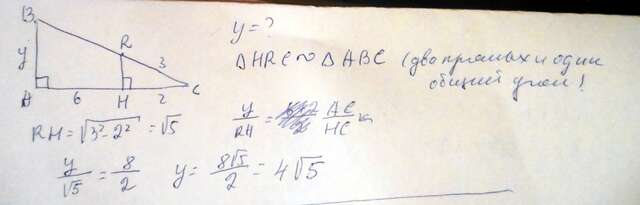 B
y = ?
R
y
3
△HRC ∾ △ABC (два прямых и один
общий угол!
A 6 H 2 C
RH = √3²-2² = √5
y/RH = AC/HC
y/√5 = 8/2 y = 8√5/2 = 4√5